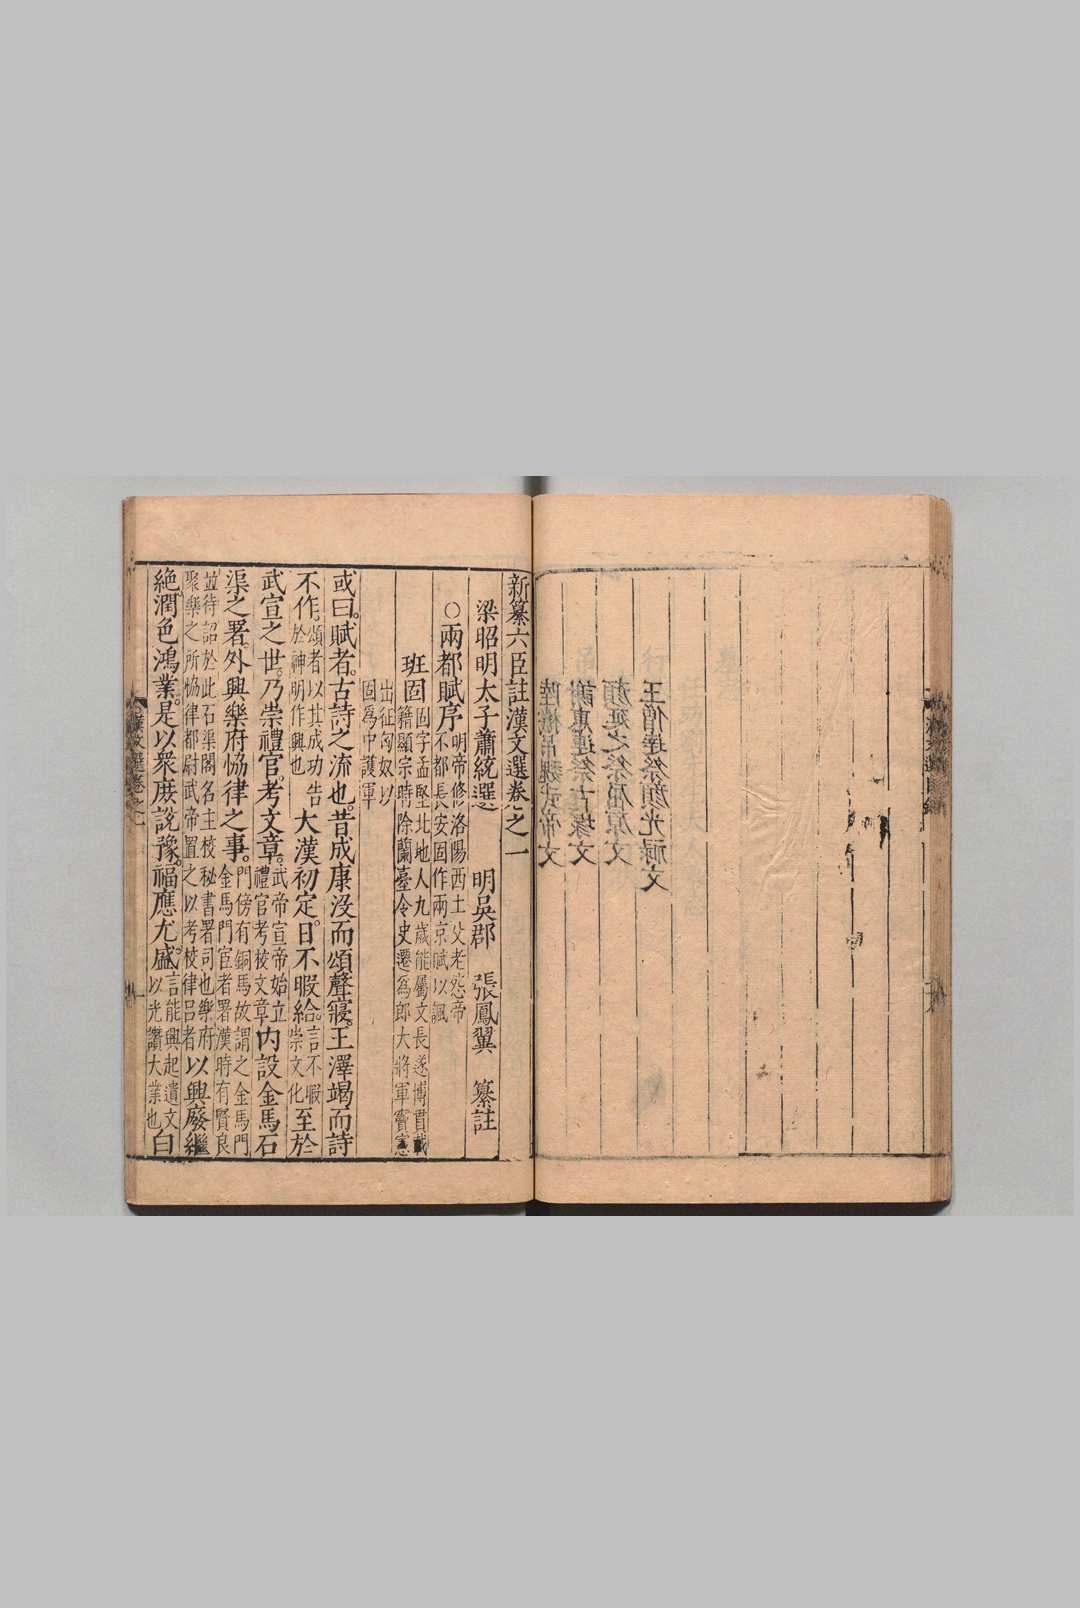 王僧達祭顔光祿文
顔延之祭屈原文
謝惠連祭古冢文
陸機吊魏武帝文
新纂六臣註漢文選卷之一
梁昭明太子蕭統選　明吳郡　張鳳翼　纂註
○兩都賦序明帝修洛陽西土父老怨帝不都長安固作兩京賦以諷
班固固字孟堅北地人九歲能屬文長遂博貫載籍顯宗時除蘭臺令史遷爲郎大將軍竇憲
出征匈奴以固爲中護軍
或曰。賦者。古詩之流也。昔成康沒而頌聲寢。王澤竭而詩
不作。頌者以其成功告於神明作興也大漢初定。日不暇給。言不暇崇文化至於
武宣之世。乃崇禮官。考文章。武帝宣帝始立禮官考校文章内設金馬石
渠之署。外興樂府恊律之事。門傍有銅馬故謂之金馬門金馬門宦者署漢時有賢良
並待詔於此石渠閣名主校秘書署司也樂府聚樂之所恊律都尉武帝置之以考校律呂者以興廢繼
絶。潤色鴻業。是以衆庶説豫。福應尤盛。言能興起遺文以光讚大業也白
漢文選卷之一
一